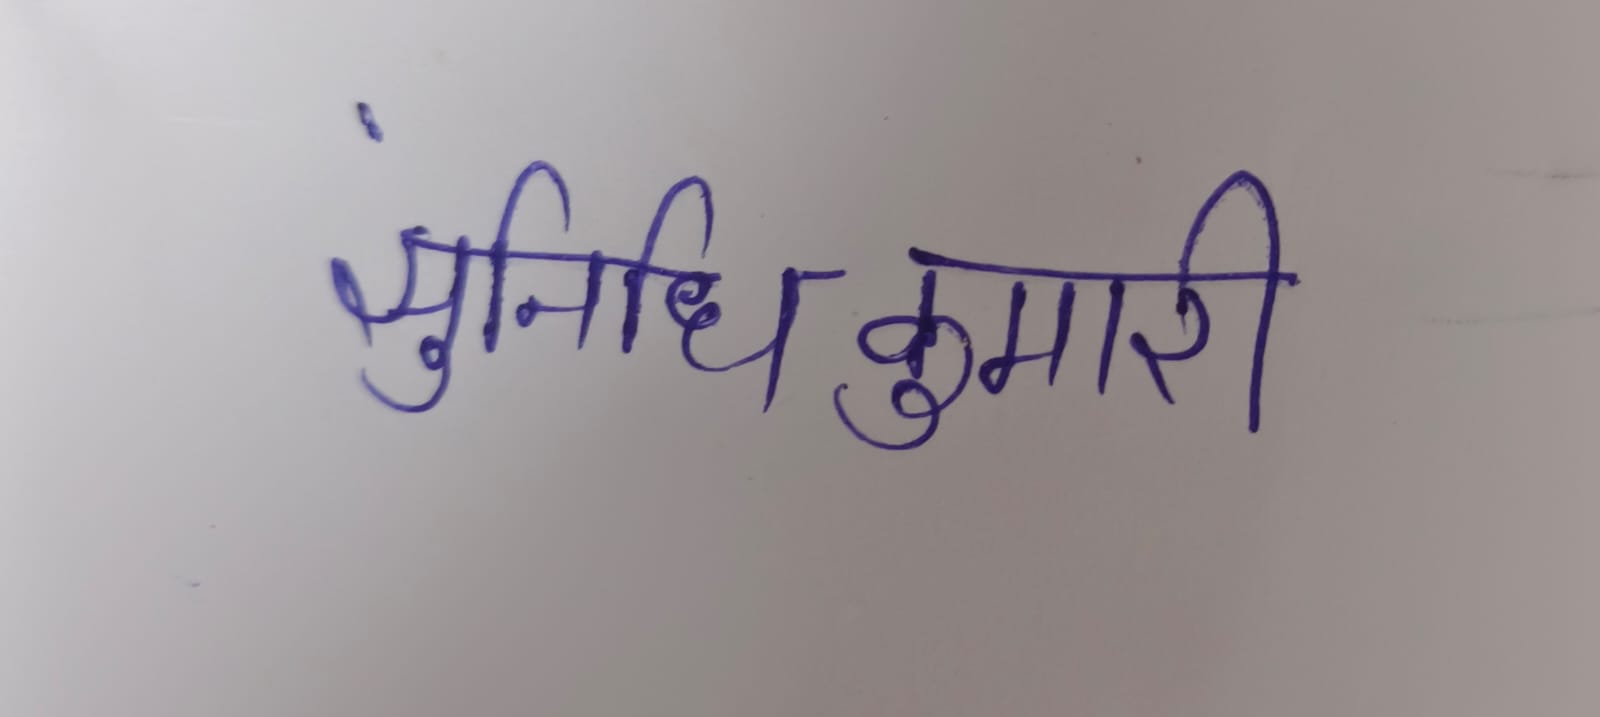 सुनिधि कुमारी